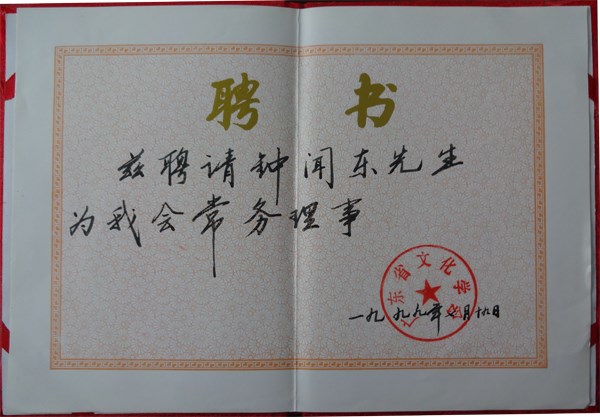 聘书
兹聘请钟闻东先生
为我会常务理事
广东省文化学会
一九九九年七月十九日